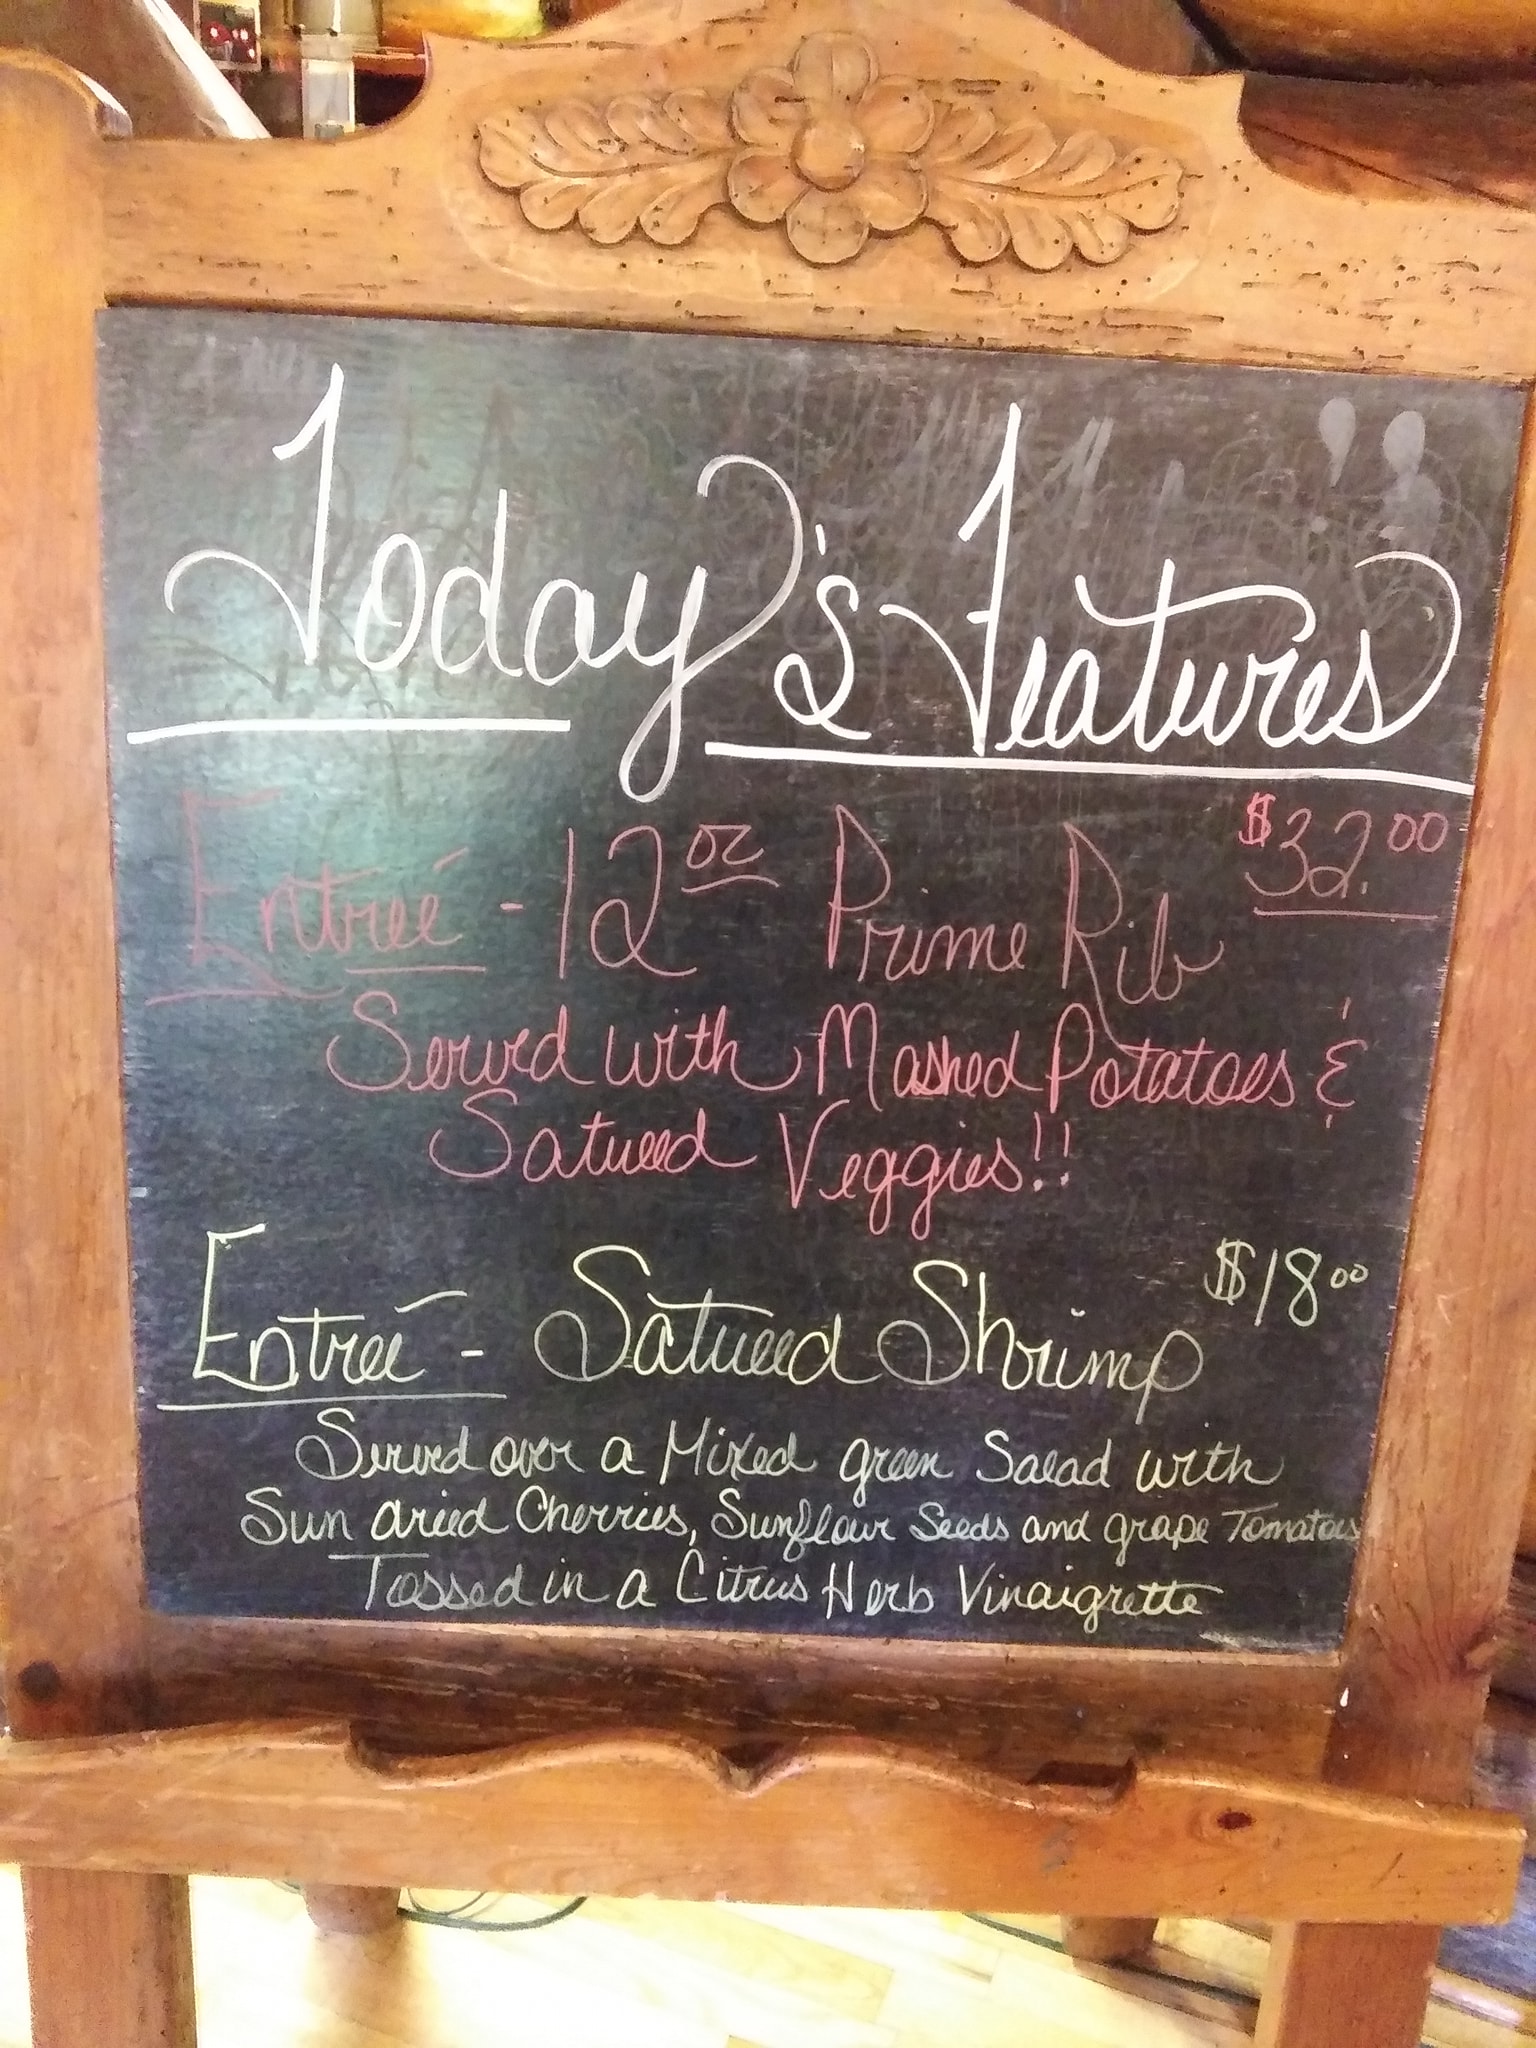 Today's Features
Entreé - 12 oz Prime Rib $32.00
Served with Mashed Potatoes &
Satueed Veggies!!
Entreé - Satueed Shrimp $18.00
Served over a Mixed green Salad with
Sun dried Cherries, Sunflour Seeds and grape Tomatoes
Tossed in a Citrus Herb Vinaigrette